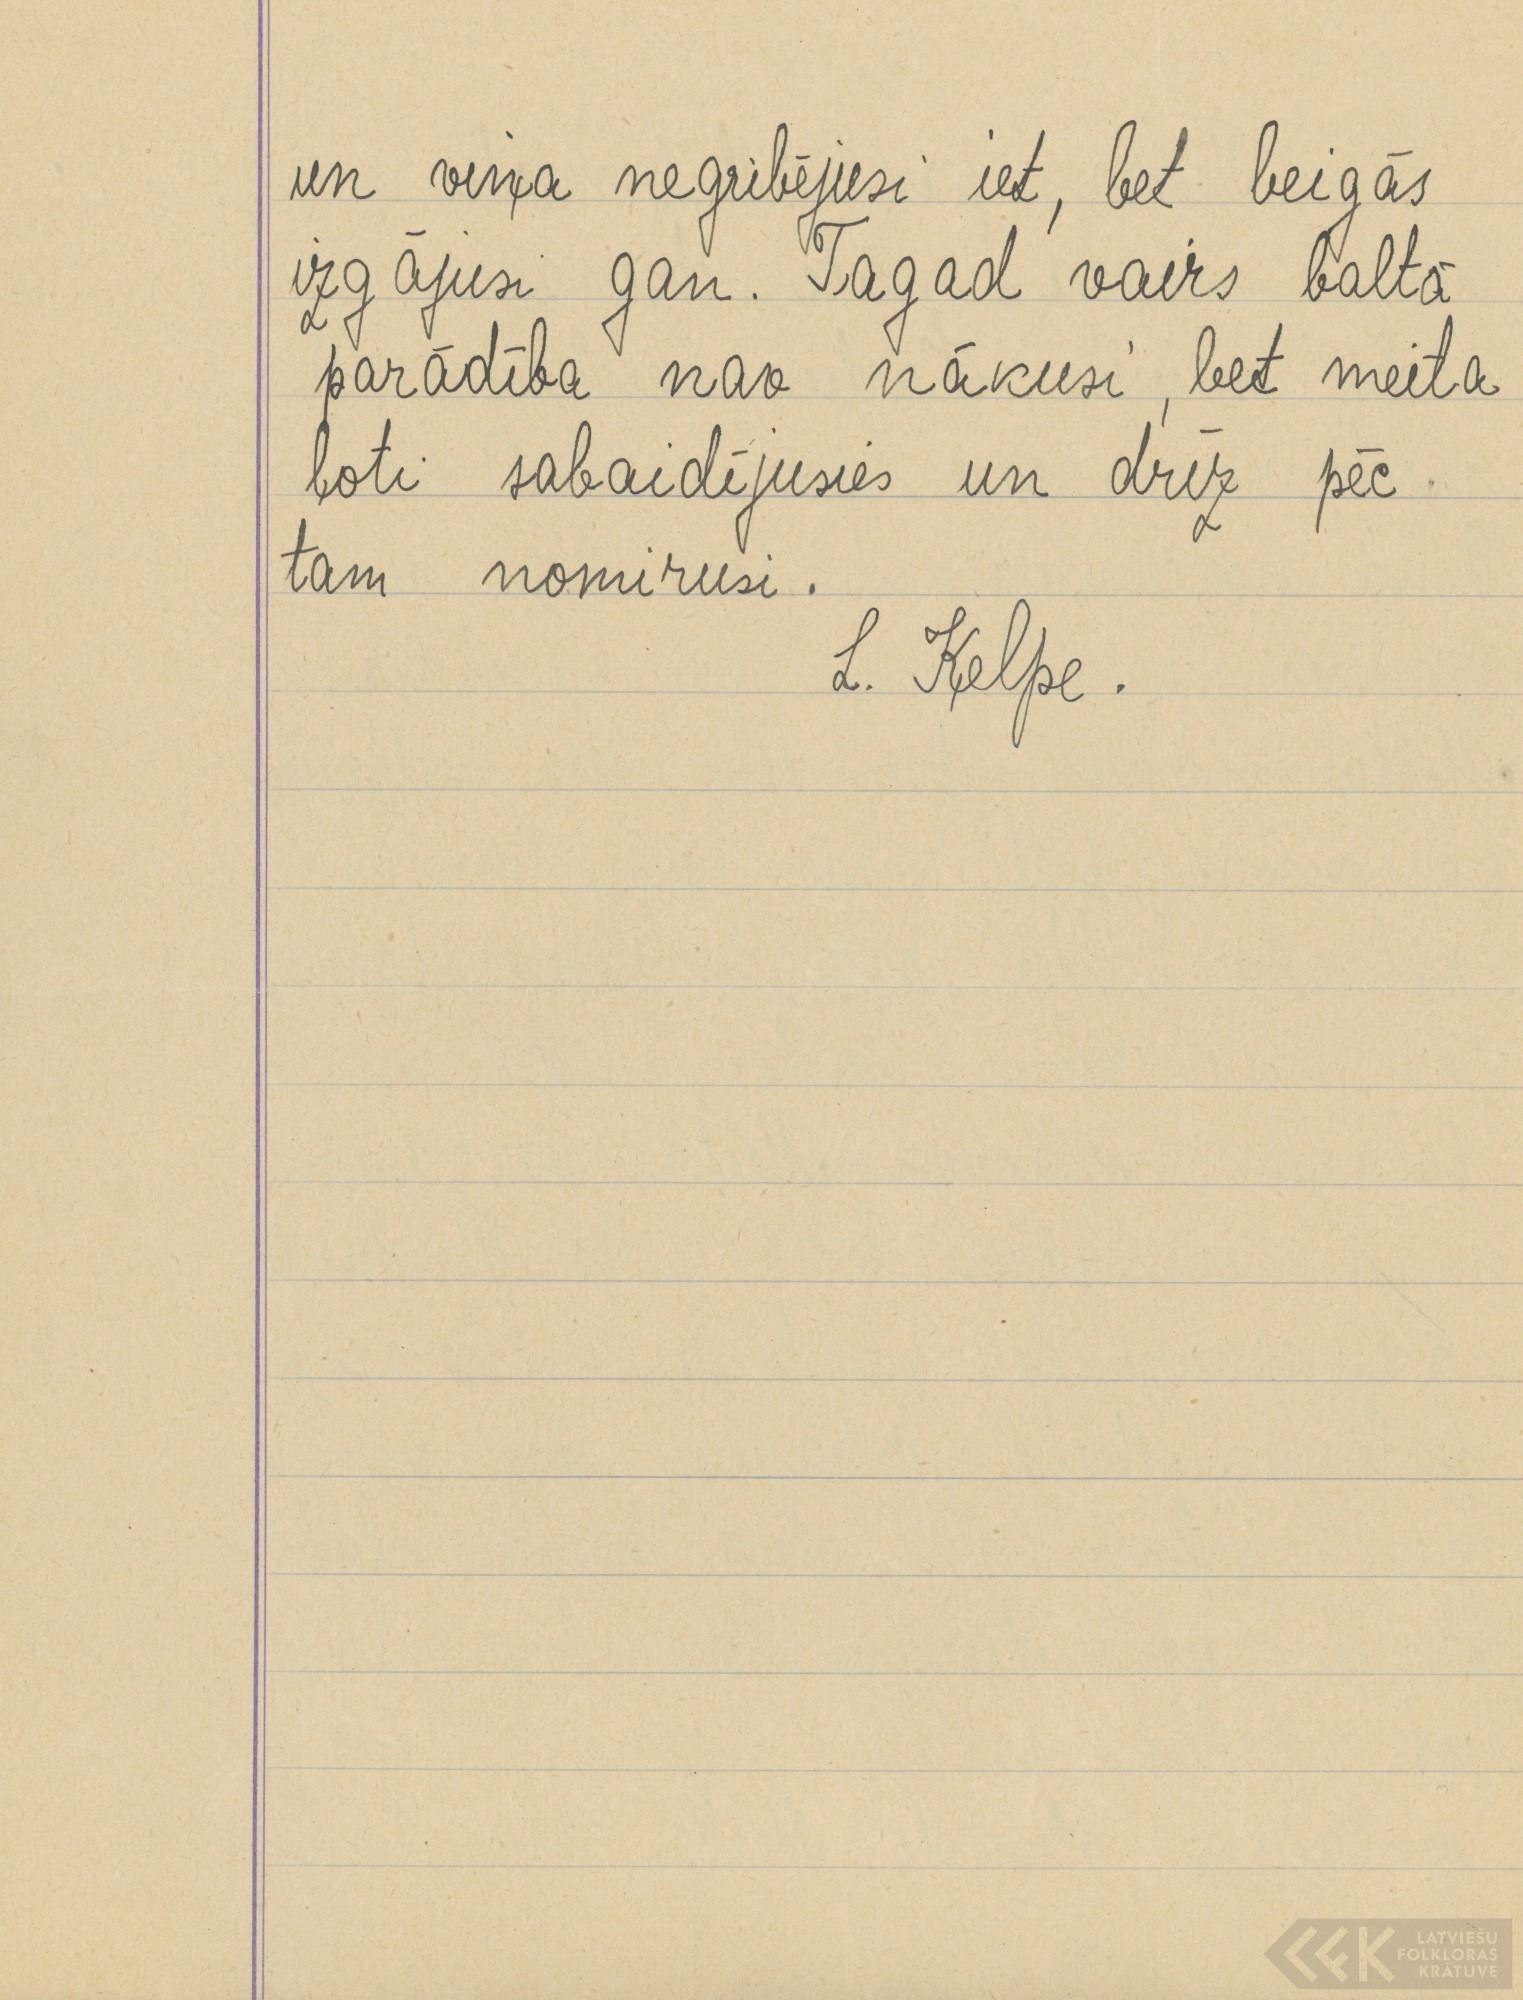 un viņa negribējusi iet, bet beigās
izgājusi gan. Tagad vairs baltā
parādība nav nākusi, bet meita
ļoti sabaidējusies un drīz pēc
tam nomirusi.
L. Kelpe.
LATVIEŠU
FOLKLORAS
KRĀTUVE